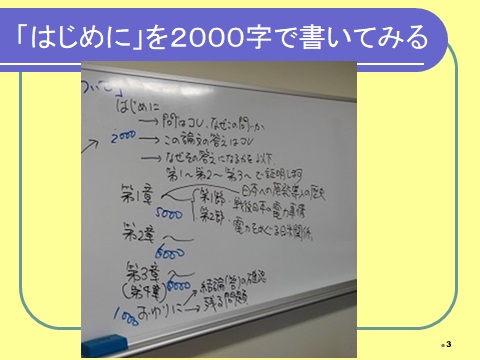 「はじめに」を2000字で書いてみる
ついて」
はじめに
→ 問はコレ、なぜこの問いか
2000
→ この論文の答えはコレ
→ なぜその答えになるかを以下、
第1~第2~第3~で証明します
第1章
日本への原発導入の歴史
第1部・戦後日本の電力事情
5000
第2部・電力をめぐる日米関係
第2章 ~
6000
第3章 ~
(第4章)
6000
結論(答)の確認
1000 おわりに → 残る問題
3